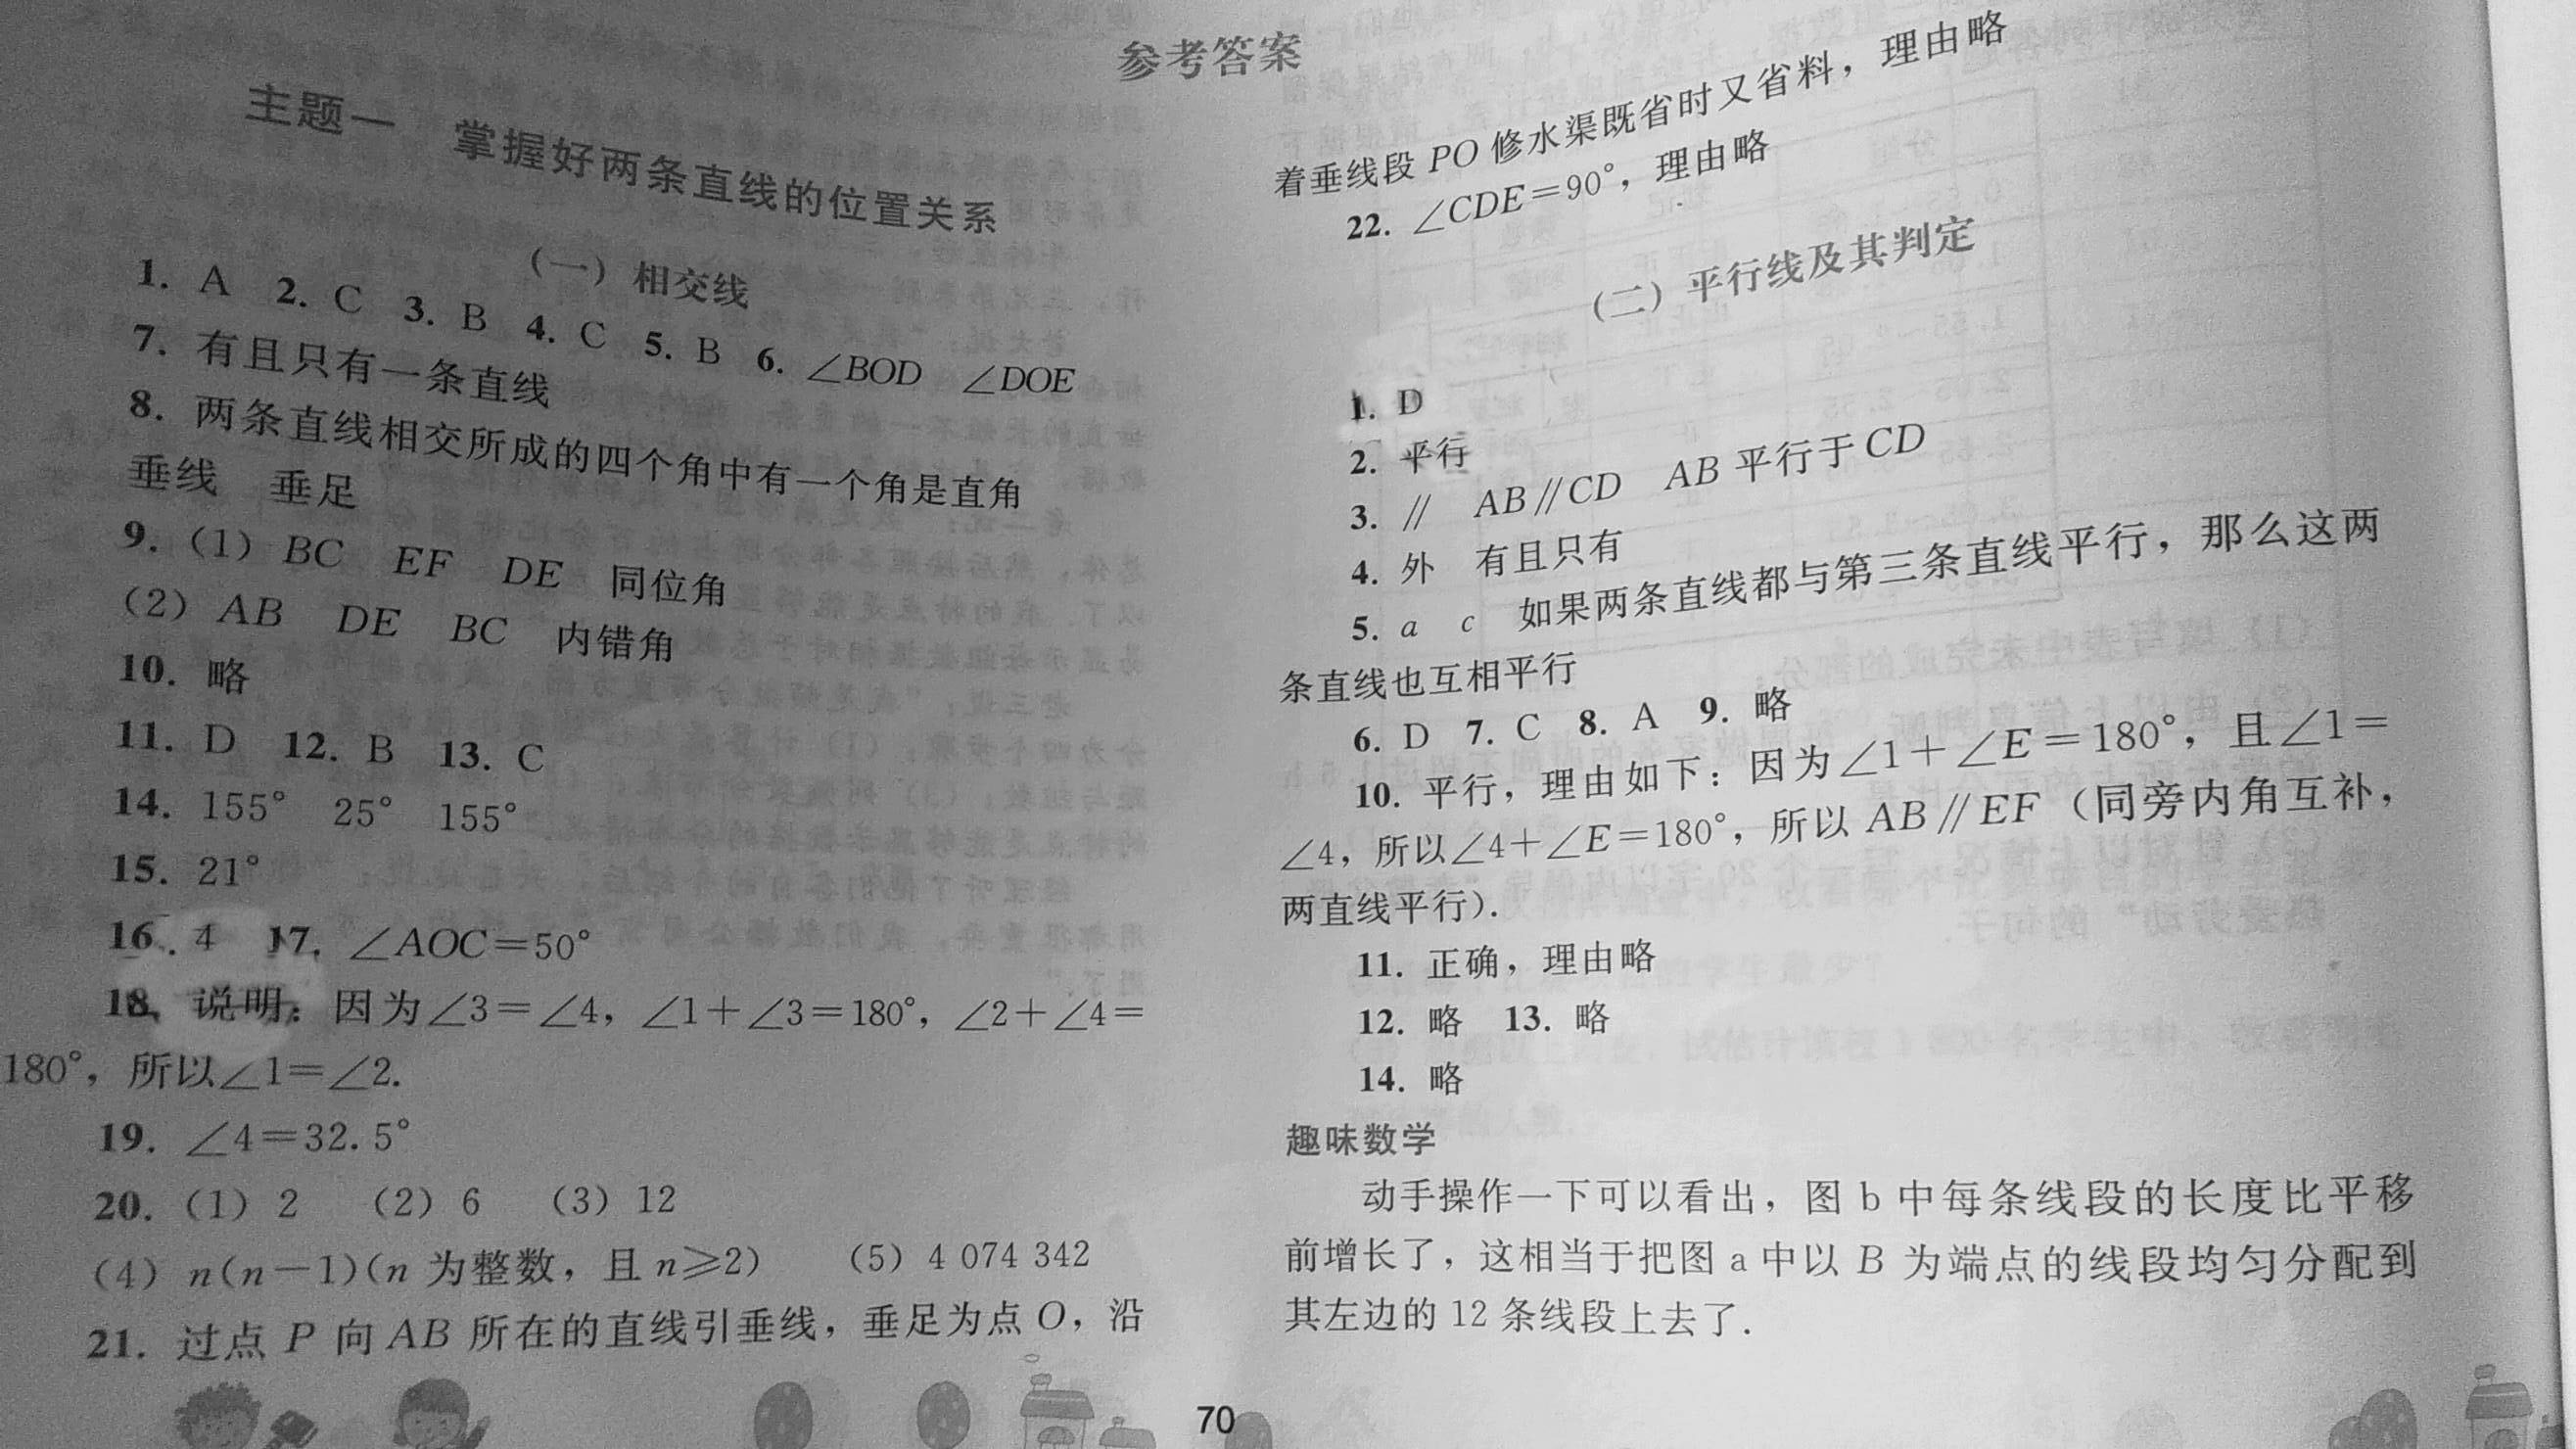 参考答案
主题一 掌握好两条直线的位置关系
(一) 相交线
1. A 2. C 3. B 4. C 5. B 6. ∠BOD ∠DOE
7. 有且只有一条直线
8. 两条直线相交所成的四个角中有一个角是直角
垂线 垂足
9. (1) BC EF DE 同位角
(2) AB DE BC 内错角
10. 略
11. D 12. B 13. C
14. 155° 25° 155°
15. 21°
16. 4 17. ∠AOC=50°
18. 说明：因为∠3=∠4，∠1+∠3=180°，∠2+∠4=
180°，所以∠1=∠2.
19. ∠4=32.5°
20. (1) 2 (2) 6 (3) 12
(4) n(n-1)(n 为整数，且 n⩾2) (5) 4 074 342
21. 过点 P 向 AB 所在的直线引垂线，垂足为点 O，沿
着垂线段 PO 修水渠既省时又省料，理由略
22. ∠CDE=90°，理由略
(二) 平行线及其判定
1. D
2. 平行
3. ∥ AB∥CD AB 平行于 CD
4. 外 有且只有
5. a c 如果两条直线都与第三条直线平行，那么这两
条直线也互相平行
6. D 7. C 8. A 9. 略
10. 平行，理由如下：因为∠1+∠E=180°，且∠1=
∠4，所以∠4+∠E=180°，所以 AB∥EF（同旁内角互补，
两直线平行）.
11. 正确，理由略
12. 略 13. 略
14. 略
趣味数学
动手操作一下可以看出，图 b 中每条线段的长度比平移
前增长了，这相当于把图 a 中以 B 为端点的线段均匀分配到
其左边的 12 条线段上去了.
70